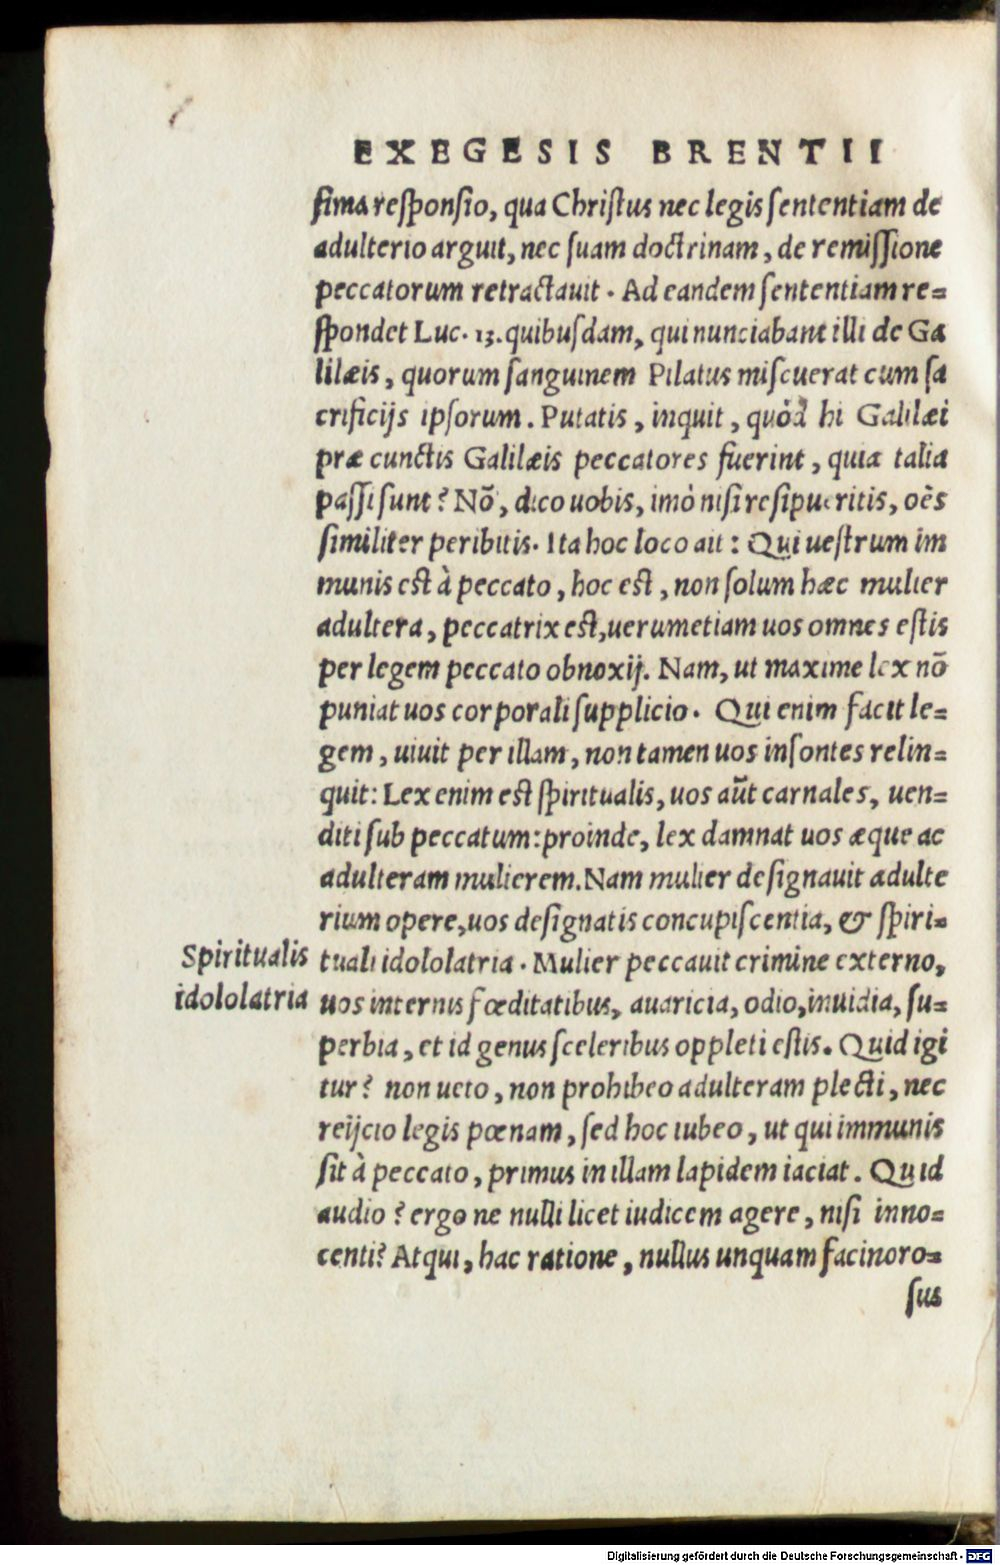 EXEGESIS BRENTII
sima responsio, qua Christus nec legis sententiam de
adulterio arguit, nec suam doctrinam, de remissione
peccatorum retractauit. Ad eandem sententiam re=
spondet Luc. 13. quibusdam, qui nunciabant illi de Ga
lilæis, quorum sanguinem Pilatus miscuerat cum sa
crificijs ipsorum. Putatis, inquit, quòd hi Galilæi
præ cunctis Galilæis peccatores fuerint, quia talia
passi sunt? Nō, dico uobis, imò nisi resipueritis, oēs
similiter peribitis. Ita hoc loco ait: Qui uestrum im
munis est à peccato, hoc est, non solum hæc mulier
adultera, peccatrix est, uerumetiam uos omnes estis
per legem peccato obnoxij. Nam, ut maxime lex nō
puniat uos corporali supplicio. Qui enim facit le=
gem, uiuit per illam, non tamen uos insontes relin=
quit: Lex enim est spiritualis, uos aūt carnales, uen=
diti sub peccatum: proinde, lex damnat uos æque ac
adulteram mulierem. Nam mulier designauit adulte
rium opere, uos designatis concupiscentia, & spiri=
Spiritualis tuali idololatria. Mulier peccauit crimine externo,
idololatria uos internis fœditatibus, auaricia, odio, inuidia, su=
perbia, et id genus sceleribus oppleti estis. Quid igi
tur? non ueto, non prohibeo adulteram plecti, nec
reijcio legis pœnam, sed hoc iubeo, ut qui immunis
sit à peccato, primus in illam lapidem iaciat. Quid
audio? ergo ne nulli licet iudicem agere, nisi inno=
centi? Atqui, hac ratione, nullus unquam facinoro=
sus
Digitalisierung gefördert durch die Deutsche Forschungsgemeinschaft - DFG